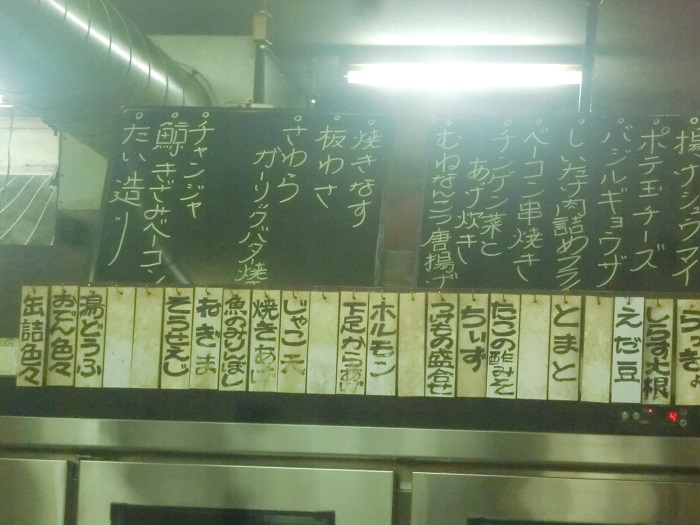 揚ゲシウマイ
ポテ玉チーズ
バジルギョウザ
しいたけ肉詰めフライ
ベーコン串焼き
チンゲン菜と
あげ炊き
むねなんこつ唐揚げ
焼きなす
板わさ
さわら
ガーリックバター焼
チャンジャ
鯨きざみベーコン
たい造り
しらす大根
えだ豆
とまと
たこの酢みそ
ちぃず
つけもの盛合せ
ホルモン
下足からあげ
じゃこ天
焼きあげ
魚のみりんぼし
ねぎま
湯どうふ
おでん色々
缶詰色々